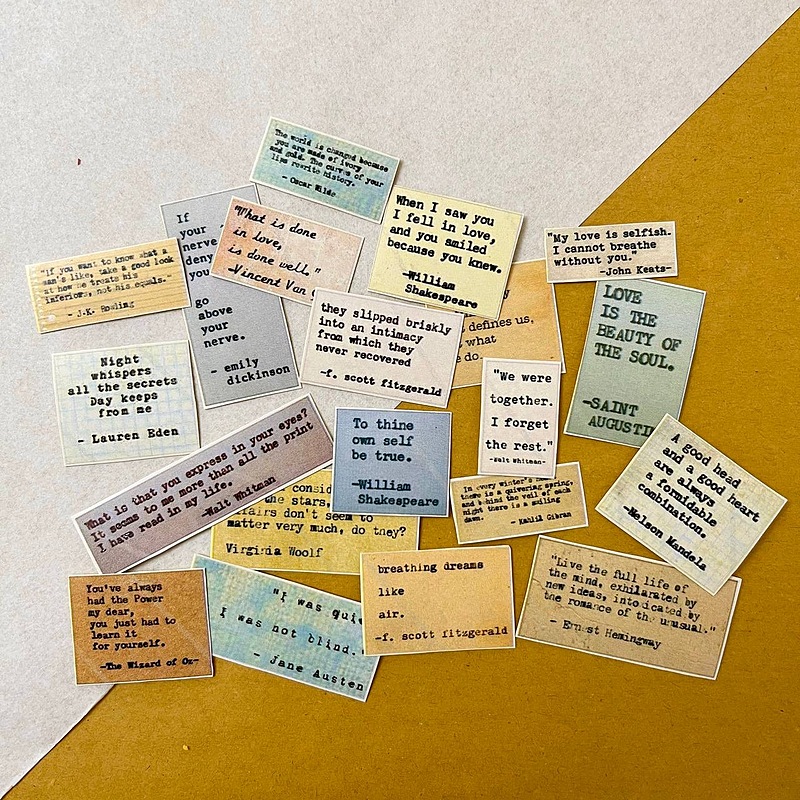 The world is changed because
you are made of ivory
and gold. The curves of your
lips rewrite history.
- Oscar Wilde
If
your
nerve
deny
you
go
above
your
nerve.
- emily
dickinson
"What is done
in love,
is done well."
-Vincent Van
When I saw you
I fell in love,
and you smiled
because you knew.
-William
Shakespeare
"My love is selfish.
I cannot breathe
without you."
-John Keats-
"If you want to know what a
man's like, take a good look
at how he treats his
inferiors, not his equals."
- J.K. Rowling
they slipped briskly
into an intimacy
from which they
never recovered
-f. scott fitzgerald
defines us,
what
do.
LOVE
IS THE
BEAUTY OF
THE SOUL.
-SAINT
AUGUSTIN
Night
whispers
all the secrets
Day keeps
from me
- Lauren Eden
"We were
together.
I forget
the rest."
-Walt Whitman-
What is that you express in your eyes?
It seems to me more than all the print
I have read in my life.
-Walt Whitman
To thine
own self
be true.
-William
Shakespeare
A good head
and a good heart
are always
a formidable
combination.
-Nelson Mandela
In every winter's
there is a quivering spring,
and behind the veil of each
night there is a smiling
dawn.
- Kahlil Gibran
consid
the stars,
affairs don't seem to
matter very much, do they?
Virginia Woolf
You've always
had the Power
my dear,
you just had to
learn it
for yourself.
-The Wizard of Oz-
"I was quie
I was not blind."
- Jane Austen
breathing dreams
like
air.
-f. scott fitzgerald
"Live the full life of
the mind, exhilarated by
new ideas, intoxicated by
the romance of the unusual."
- Ernest Hemingway